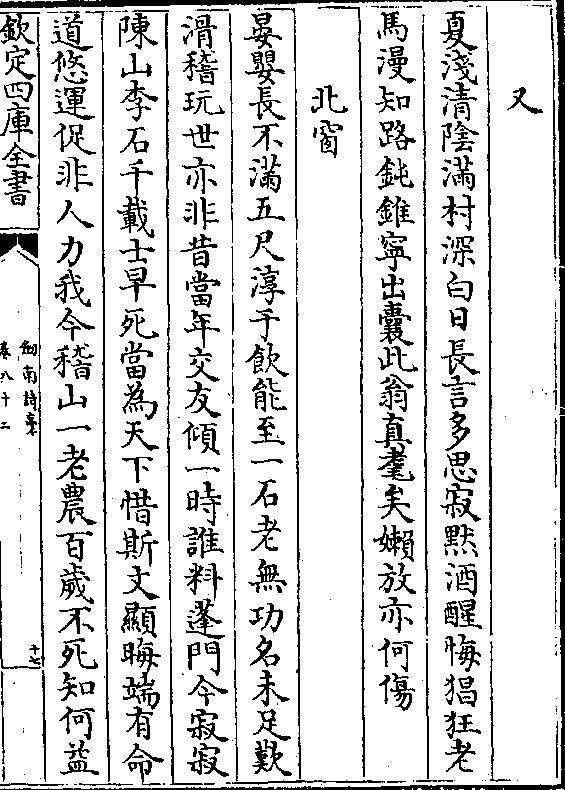 又
夏淺清陰滿村深白日長言多思寂黙酒醒悔猖狂老
馬漫知路鈍錐寧出囊此翁真耄矣嬾放亦何傷
北窗
晏嬰長不滿五尺淳于飲能至一石老無功名未足歎
滑稽玩世亦非昔當年交友傾一時誰料蓬門今寂寂
陳山李石千載士早死當為天下惜斯文顯晦端有命
道悠運促非人力我今稽山一老農百歲不死知何益
欽定四庫全書
劍南詩稾
卷八十二
十七